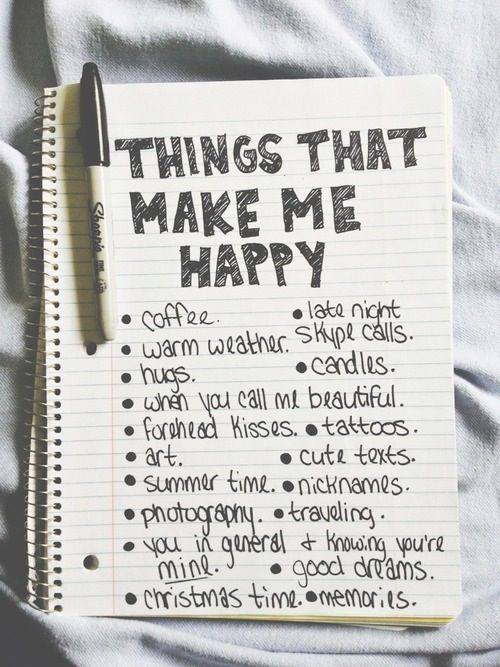 THINGS THAT
MAKE ME
HAPPY
Sharpie
• coffee.
• late night
skype calls.
• warm weather.
• hugs.
• candles.
• when you call me beautiful.
• forehead kisses. • tattoos.
• art. • cute texts.
• summer time. • nicknames.
• photography. • traveling.
• you in general + knowing you're
mine. • good dreams.
• christmas time. • memories.